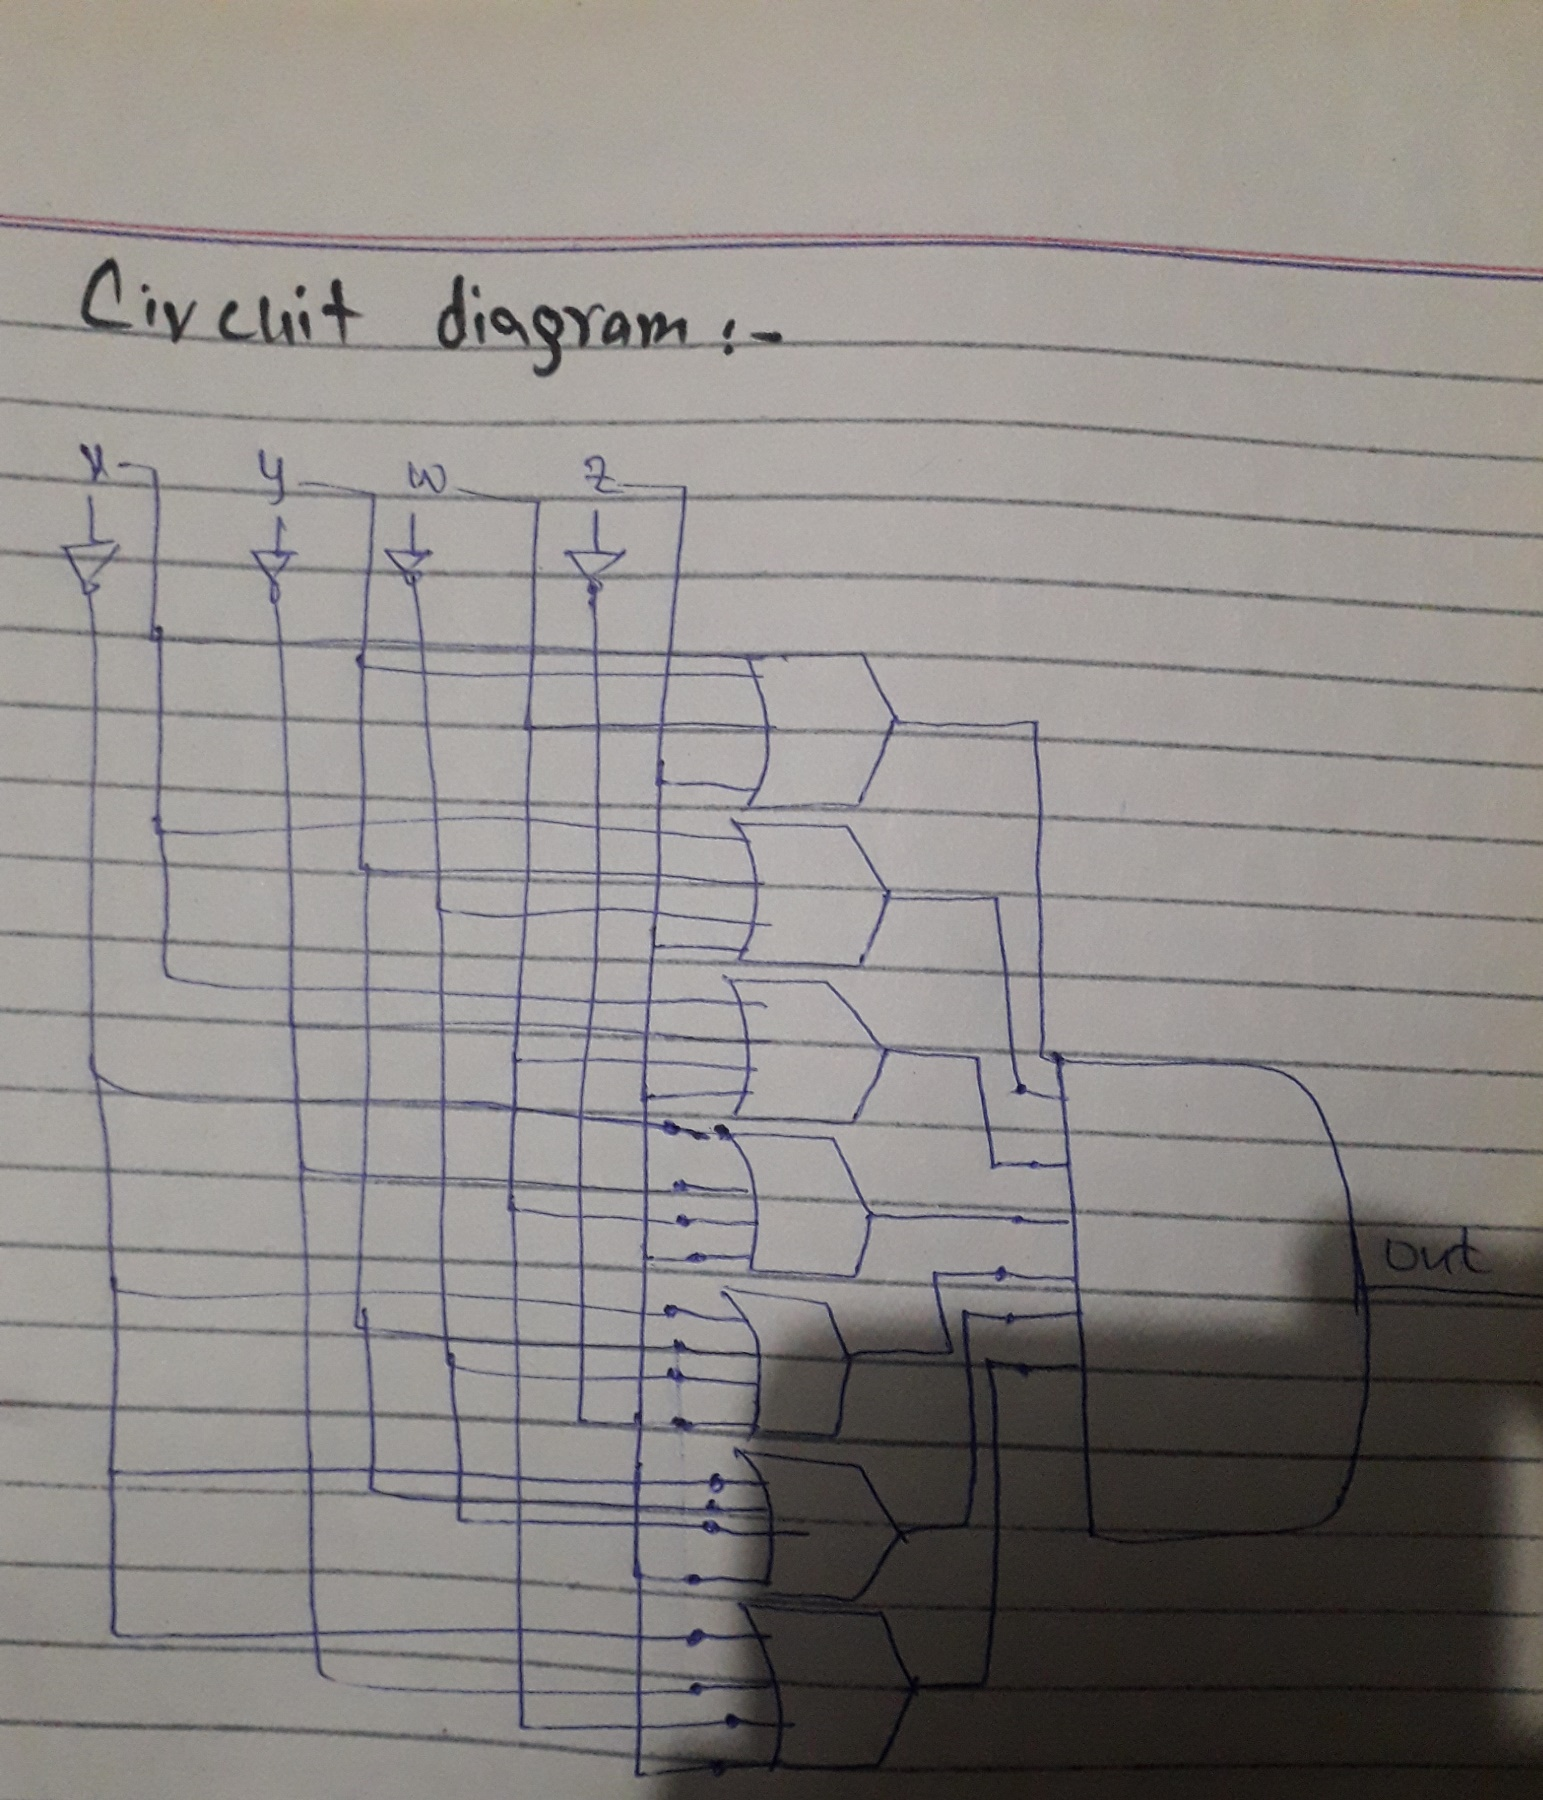 Circuit diagram :-
x y w z
out